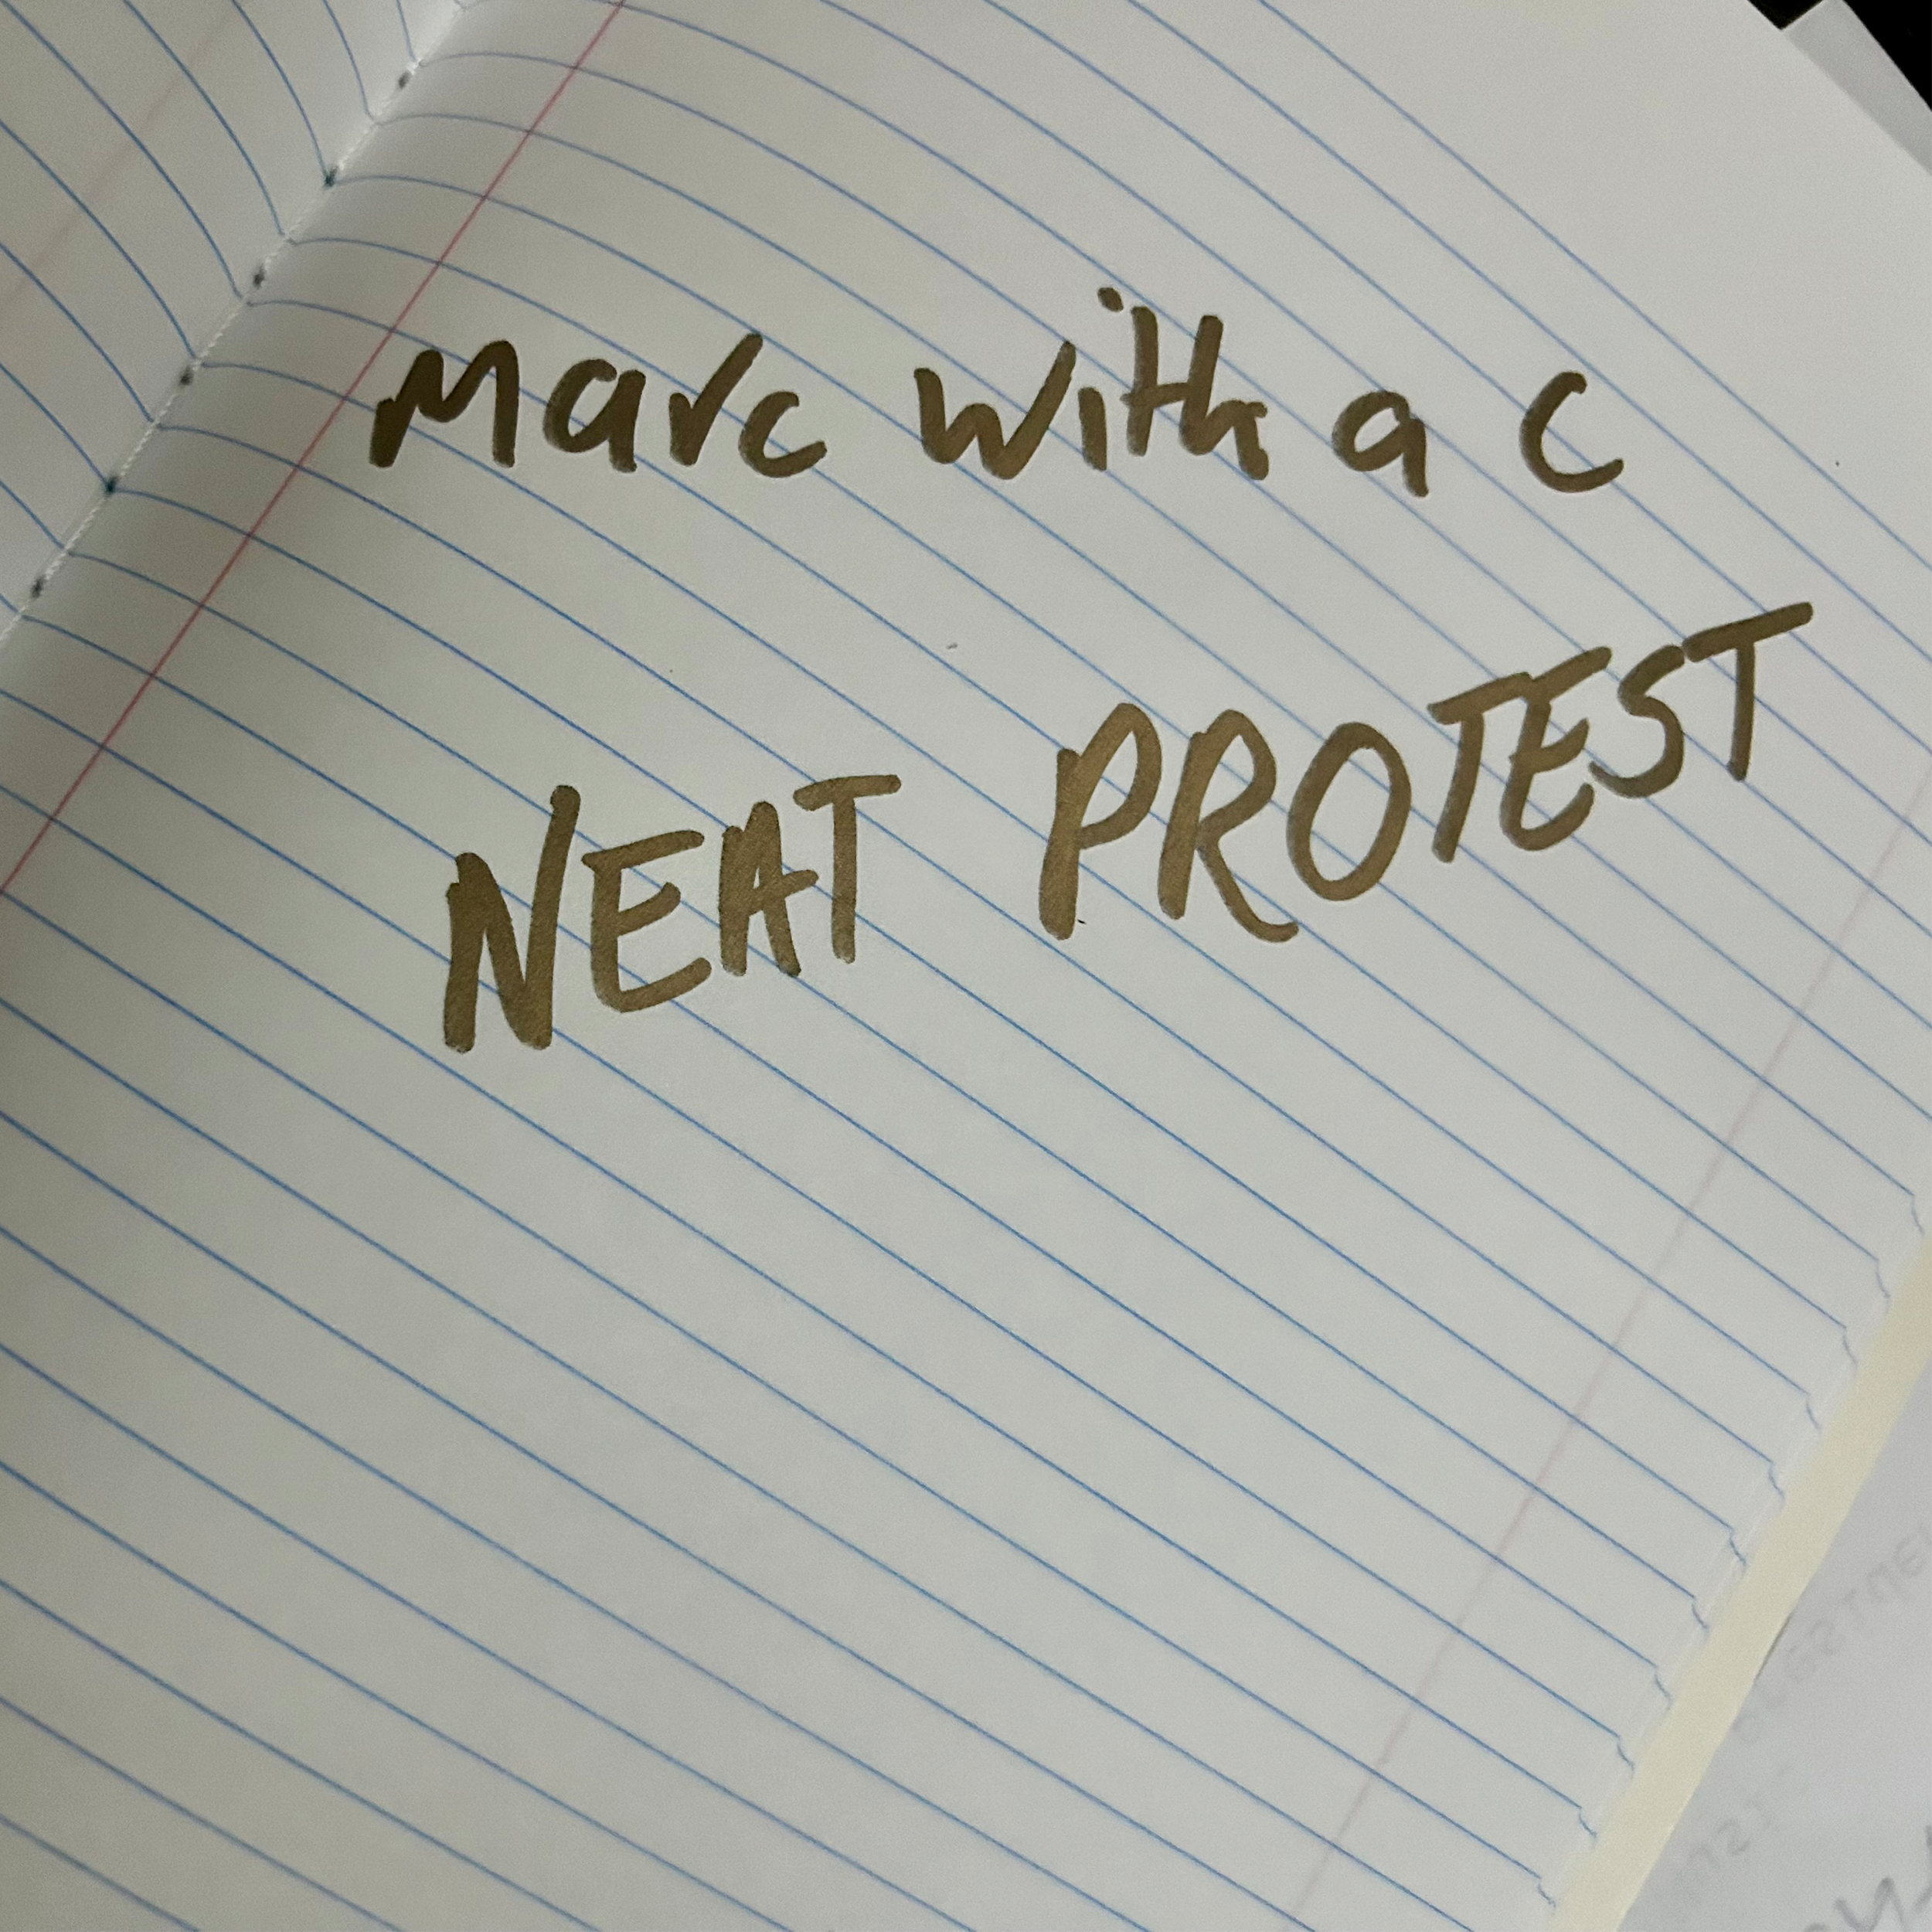 Marc with a c
NEAT PROTEST